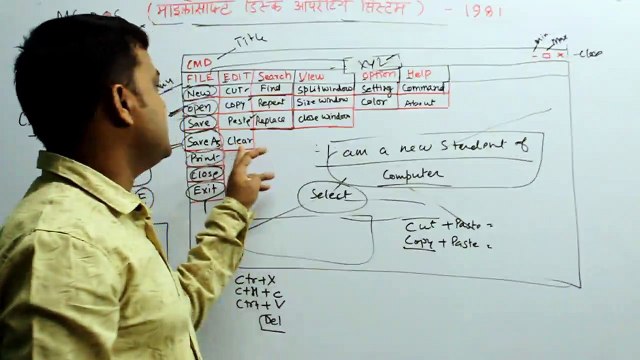 (माइक्रोसॉफ्ट डिस्क आपरेटिंग सिस्टम) - 1981
Title
CMD
XYZ
Close
FILE EDIT Search View Option Help
New Cut Find Split window Setting Command
Open Copy Repeat Size window Color About
Save Paste Replace Close window
Save As Clear
Print
Close
Exit
I am a new Stendent of
Computer
Select
Cut + Paste =
Copy + Paste =
Ctr + X
Ctrl + C
Ctrl + V
Del